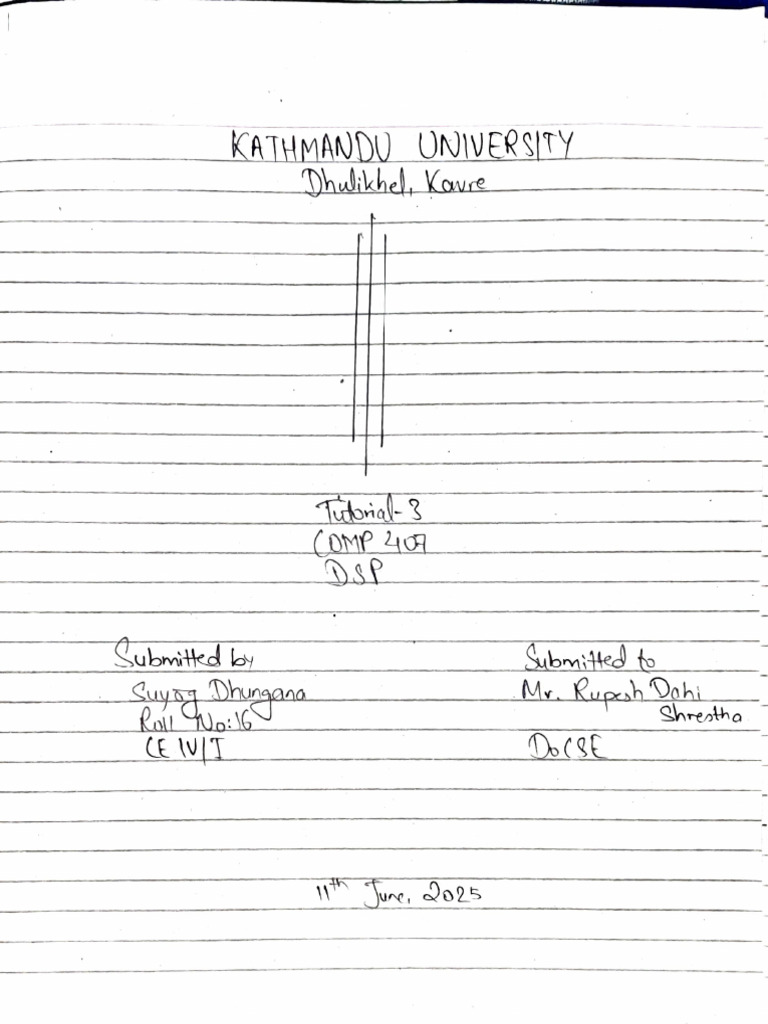 KATHMANDU UNIVERSITY
Dhulikhel, Kavre
Tutorial-3
COMP 407
DSP
Submitted by
Suyog Dhungana
Roll No:16
CE IV/I
Submitted to
Mr. Rupesh Dahi
Shrestha
DoCSE
11th June, 2025